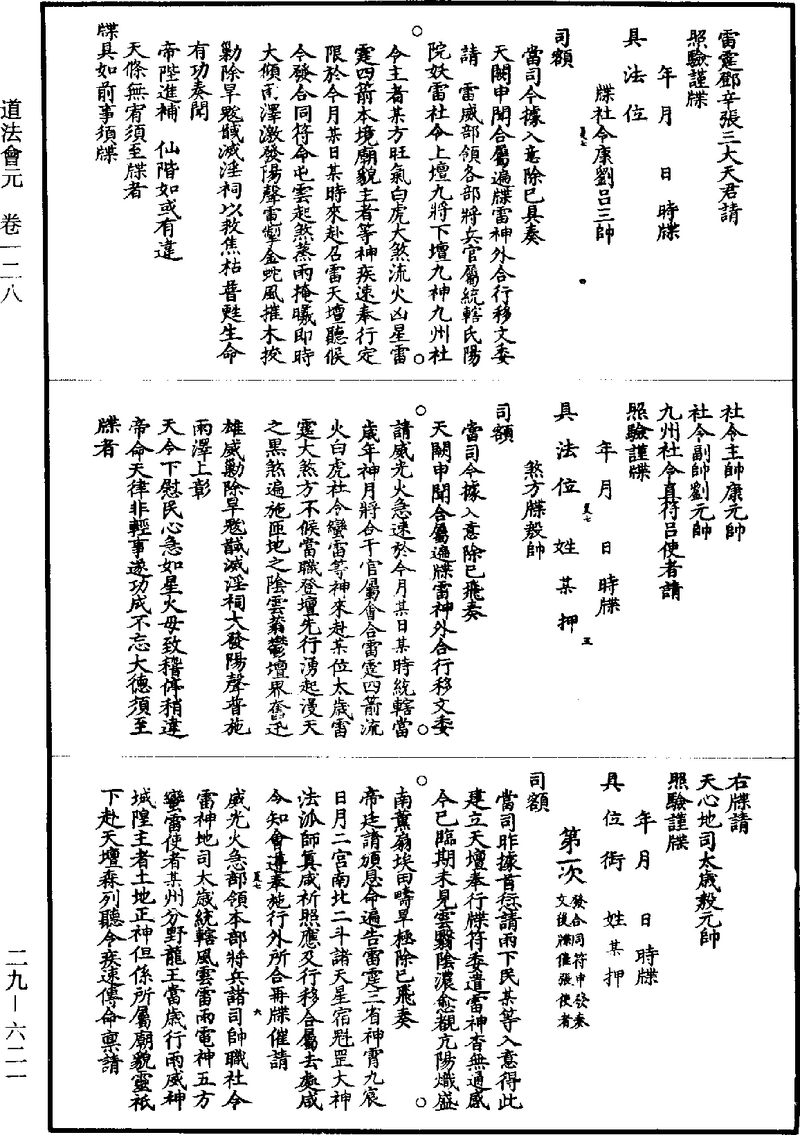 道法會元 卷一二八
二九—六二一
雷霆鄧辛張三大天君請
照驗謹牒
年 月 日 時牒
具 法 位
牒社令康劉呂三帥
司額
當司今據入意除已具奏
天闕申聞合屬遍牒雷神外合行移文委
請 雷威部領各部將兵官屬統轄氏陽
院妖雷社令上壇九將下壇九神九州社
令主者某方旺氣白虎大煞流火凶星雷
霆四箭本境廟貌主者等神疾速奉行定
限於今月某日某時來赴召雷天壇聽候
令發合同符命屯雲起煞蒸雨掩曦即時
大傾雨澤激發陽聲電掣金蛇風摧木拔
勦除旱魃馘滅淫祠以救焦枯普甦生命
有功奏聞
帝陛進補 仙階如或有違
天條無宥須至牒者
牒具如前事須牒
社令主帥康元帥
社令副帥劉元帥
九州社令直符呂使者請
照驗謹牒
年 月 日 時牒
具 法 位 姓 某 押
煞方牒殷帥
司額
當司今據入意除已飛奏
天闕申聞合屬遍牒雷神外合行移文委
請威光火急速於今月某日某時統轄當
歲年神月將合干官屬會合雷霆四箭流
火白虎社令蠻雷等神來赴某位太歲雷
霆大煞方不候當職登壇先行湧起漫天
之黑煞遍施匝地之陰雲蓊鬱壇界奮迅
雄威勦除旱魃馘滅淫祠大發陽聲普施
雨澤上彰
天令下慰民心急如星火毋致稽停稍違
帝命天律非輕事遂功成不忘大德須至
牒者
右牒請
天心地司太歲殷元帥
照驗謹牒
年 月 日 時牒
具 位 銜 姓 某 押
第二次 發合同符申發奏文後牒催張使者
司額
當司昨據首称請雨下民某等入意得此
建立天壇奉行牒符委遣雷神香無通感
今已臨期未見雲翳陰濃愈覩亢陽熾盛
南薰扇埃田疇旱極除已飛奏
帝廷請頒恩命遍告雷霆三省神霄九宸
日月二宮南北二斗諸天星宿魁罡大神
法派師真咸祈照應及行移合屬去處咸
令知會遵奉施行外所合再牒催請
威光火急部領本部將兵諸司帥職社令
雷神地司太歲統轄風雲雷雨電神五方
蠻雷使者某州分野龍王當歲行雨威神
城隍主者土地正神但係所屬廟貌靈祇
下赴天壇森列聽令疾速傳命禀請